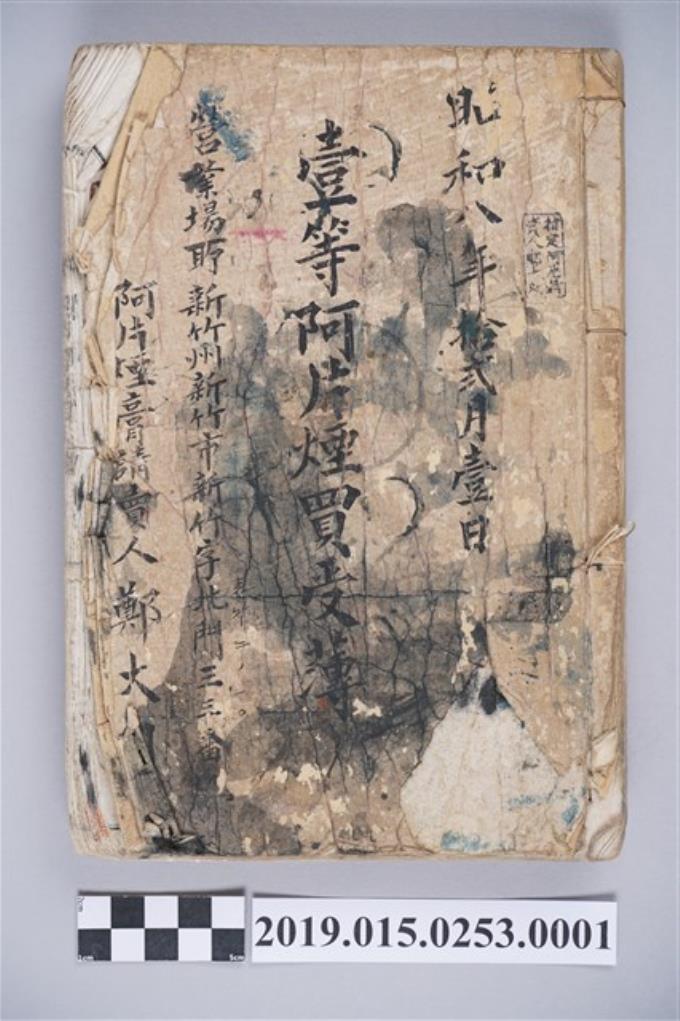 昭和八年拾弍月壹日
壹等阿片煙買受薄
營業場所 新竹州新竹市新竹字北門三三番
阿片煙膏請賣人 鄭大
2019.015.0253.0001
1cm
5cm